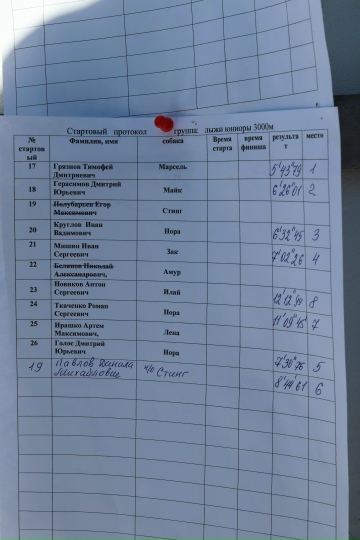 Стартовый протокол группа лыжи юниоры 3000м
№ стартовый Фамилия, имя собака Время старта время финиша результат место
17 Грязнов Тимофей Дмитриевич Марсель 5'43"79 1
18 Герасимов Дмитрий Юрьевич Майк 6'26"01 2
19 Полубарьев Егор Максимович Стинг
20 Круглов Иван Вадимович Нора 6'32"45 3
21 Мишин Иван Сергеевич Зак 7'02"26 4
22 Беляков Николай Александрович, Амур
23 Новиков Антон Сергеевич Илай 12'12"99 8
24 Ткаченко Роман Сергеевич Нора 11'09"45 7
25 Ирашко Артем Максимович, Лева
26 Голос Дмитрий Юрьевич Нора 7'30"76 5
19 Павлов Данила Михайлович ч/о Стинг 8'44"61 6